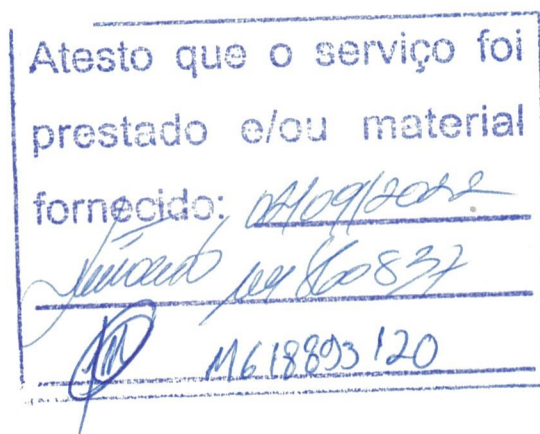 Atesto que o serviço foi
prestado e/ou material
fornecido: 02/09/2022
860837
M618893120